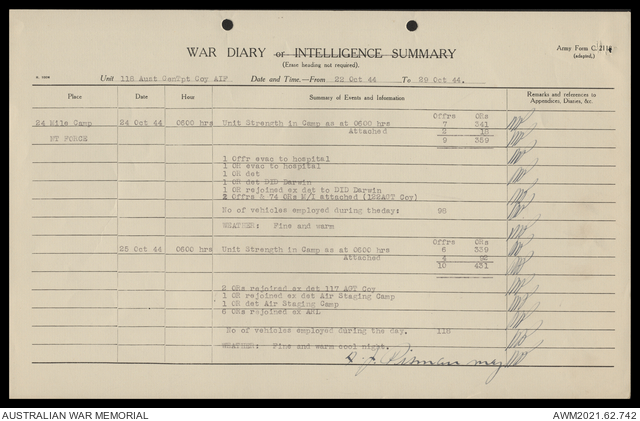 WAR DIARY or INTELLIGENCE SUMMARY
(Erase heading not required).
Army Form C. 2118
(adapted.)
Unit 118 Aust GenTpt Coy AIF Date and Time.—From 22 Oct 44 To 29 Oct 44.
Place Date Hour Summary of Events and Information Remarks and references to Appendices, Diaries, &c.
Offrs ORs
24 Mile Camp 24 Oct 44 0600 hrs Unit Strength in Camp as at 0600 hrs 7 341
Attached 2 18
NT FORCE 9 359
1 Offr evac to hospital
1 OR evac to hospital
1 OR det
1 OR det DID Darwin
1 OR rejoined ex det to DID Darwin
2 Offrs & 74 ORs M/I attached (122AGT Coy)
No of vehicles employed during theday: 98
WEATHER: Fine and warm
Offrs ORs
25 Oct 44 0600 hrs Unit Strength in Camp as at 0600 hrs 6 339
Attached 4 92
10 431
2 ORs rejoined ex det 117 AGT Coy
1 OR rejoined ex det Air Staging Camp
1 OR det Air Staging Camp
6 ORs rejoined ex ARL
No of vehicles employed during the day. 118
WEATHER: Fine and warm cool night.
Pitman maj
AUSTRALIAN WAR MEMORIAL AWM2021.62.742